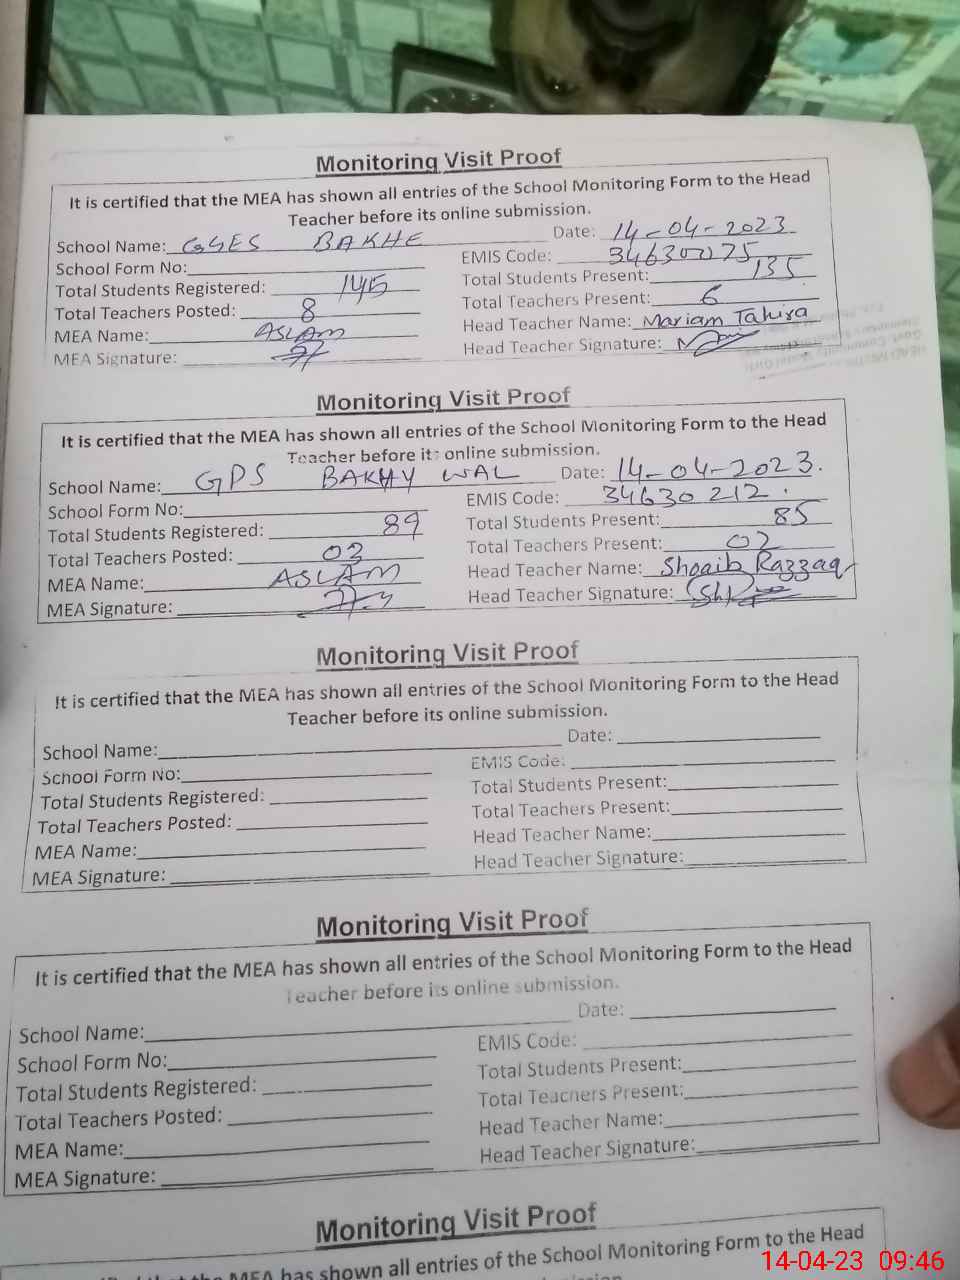 Monitoring Visit Proof
It is certified that the MEA has shown all entries of the School Monitoring Form to the Head
Teacher before its online submission.
School Name: GGES BAKHE Date: 14-04-2023
School Form No: EMIS Code: 34630075
Total Students Registered: 145 Total Students Present: 135
Total Teachers Posted: 8 Total Teachers Present: 6
MEA Name: ASLAM Head Teacher Name: Mariam Tahira
MEA Signature: Head Teacher Signature:
Monitoring Visit Proof
It is certified that the MEA has shown all entries of the School Monitoring Form to the Head
Teacher before its online submission.
School Name: GPS BAKHY WAL Date: 14-04-2023.
School Form No: EMIS Code: 34630212.
Total Students Registered: 89 Total Students Present: 85
Total Teachers Posted: 03 Total Teachers Present: 02
MEA Name: ASLAM Head Teacher Name: Shoaib Razzaq
MEA Signature: Head Teacher Signature:
Monitoring Visit Proof
It is certified that the MEA has shown all entries of the School Monitoring Form to the Head
Teacher before its online submission.
School Name: Date:
School Form No: EMIS Code:
Total Students Registered: Total Students Present:
Total Teachers Posted: Total Teachers Present:
MEA Name: Head Teacher Name:
MEA Signature: Head Teacher Signature:
Monitoring Visit Proof
It is certified that the MEA has shown all entries of the School Monitoring Form to the Head
Teacher before its online submission.
School Name: Date:
School Form No: EMIS Code:
Total Students Registered: Total Students Present:
Total Teachers Posted: Total Teachers Present:
MEA Name: Head Teacher Name:
MEA Signature: Head Teacher Signature:
Monitoring Visit Proof
that the MEA has shown all entries of the School Monitoring Form to the Head
14-04-23 09:46